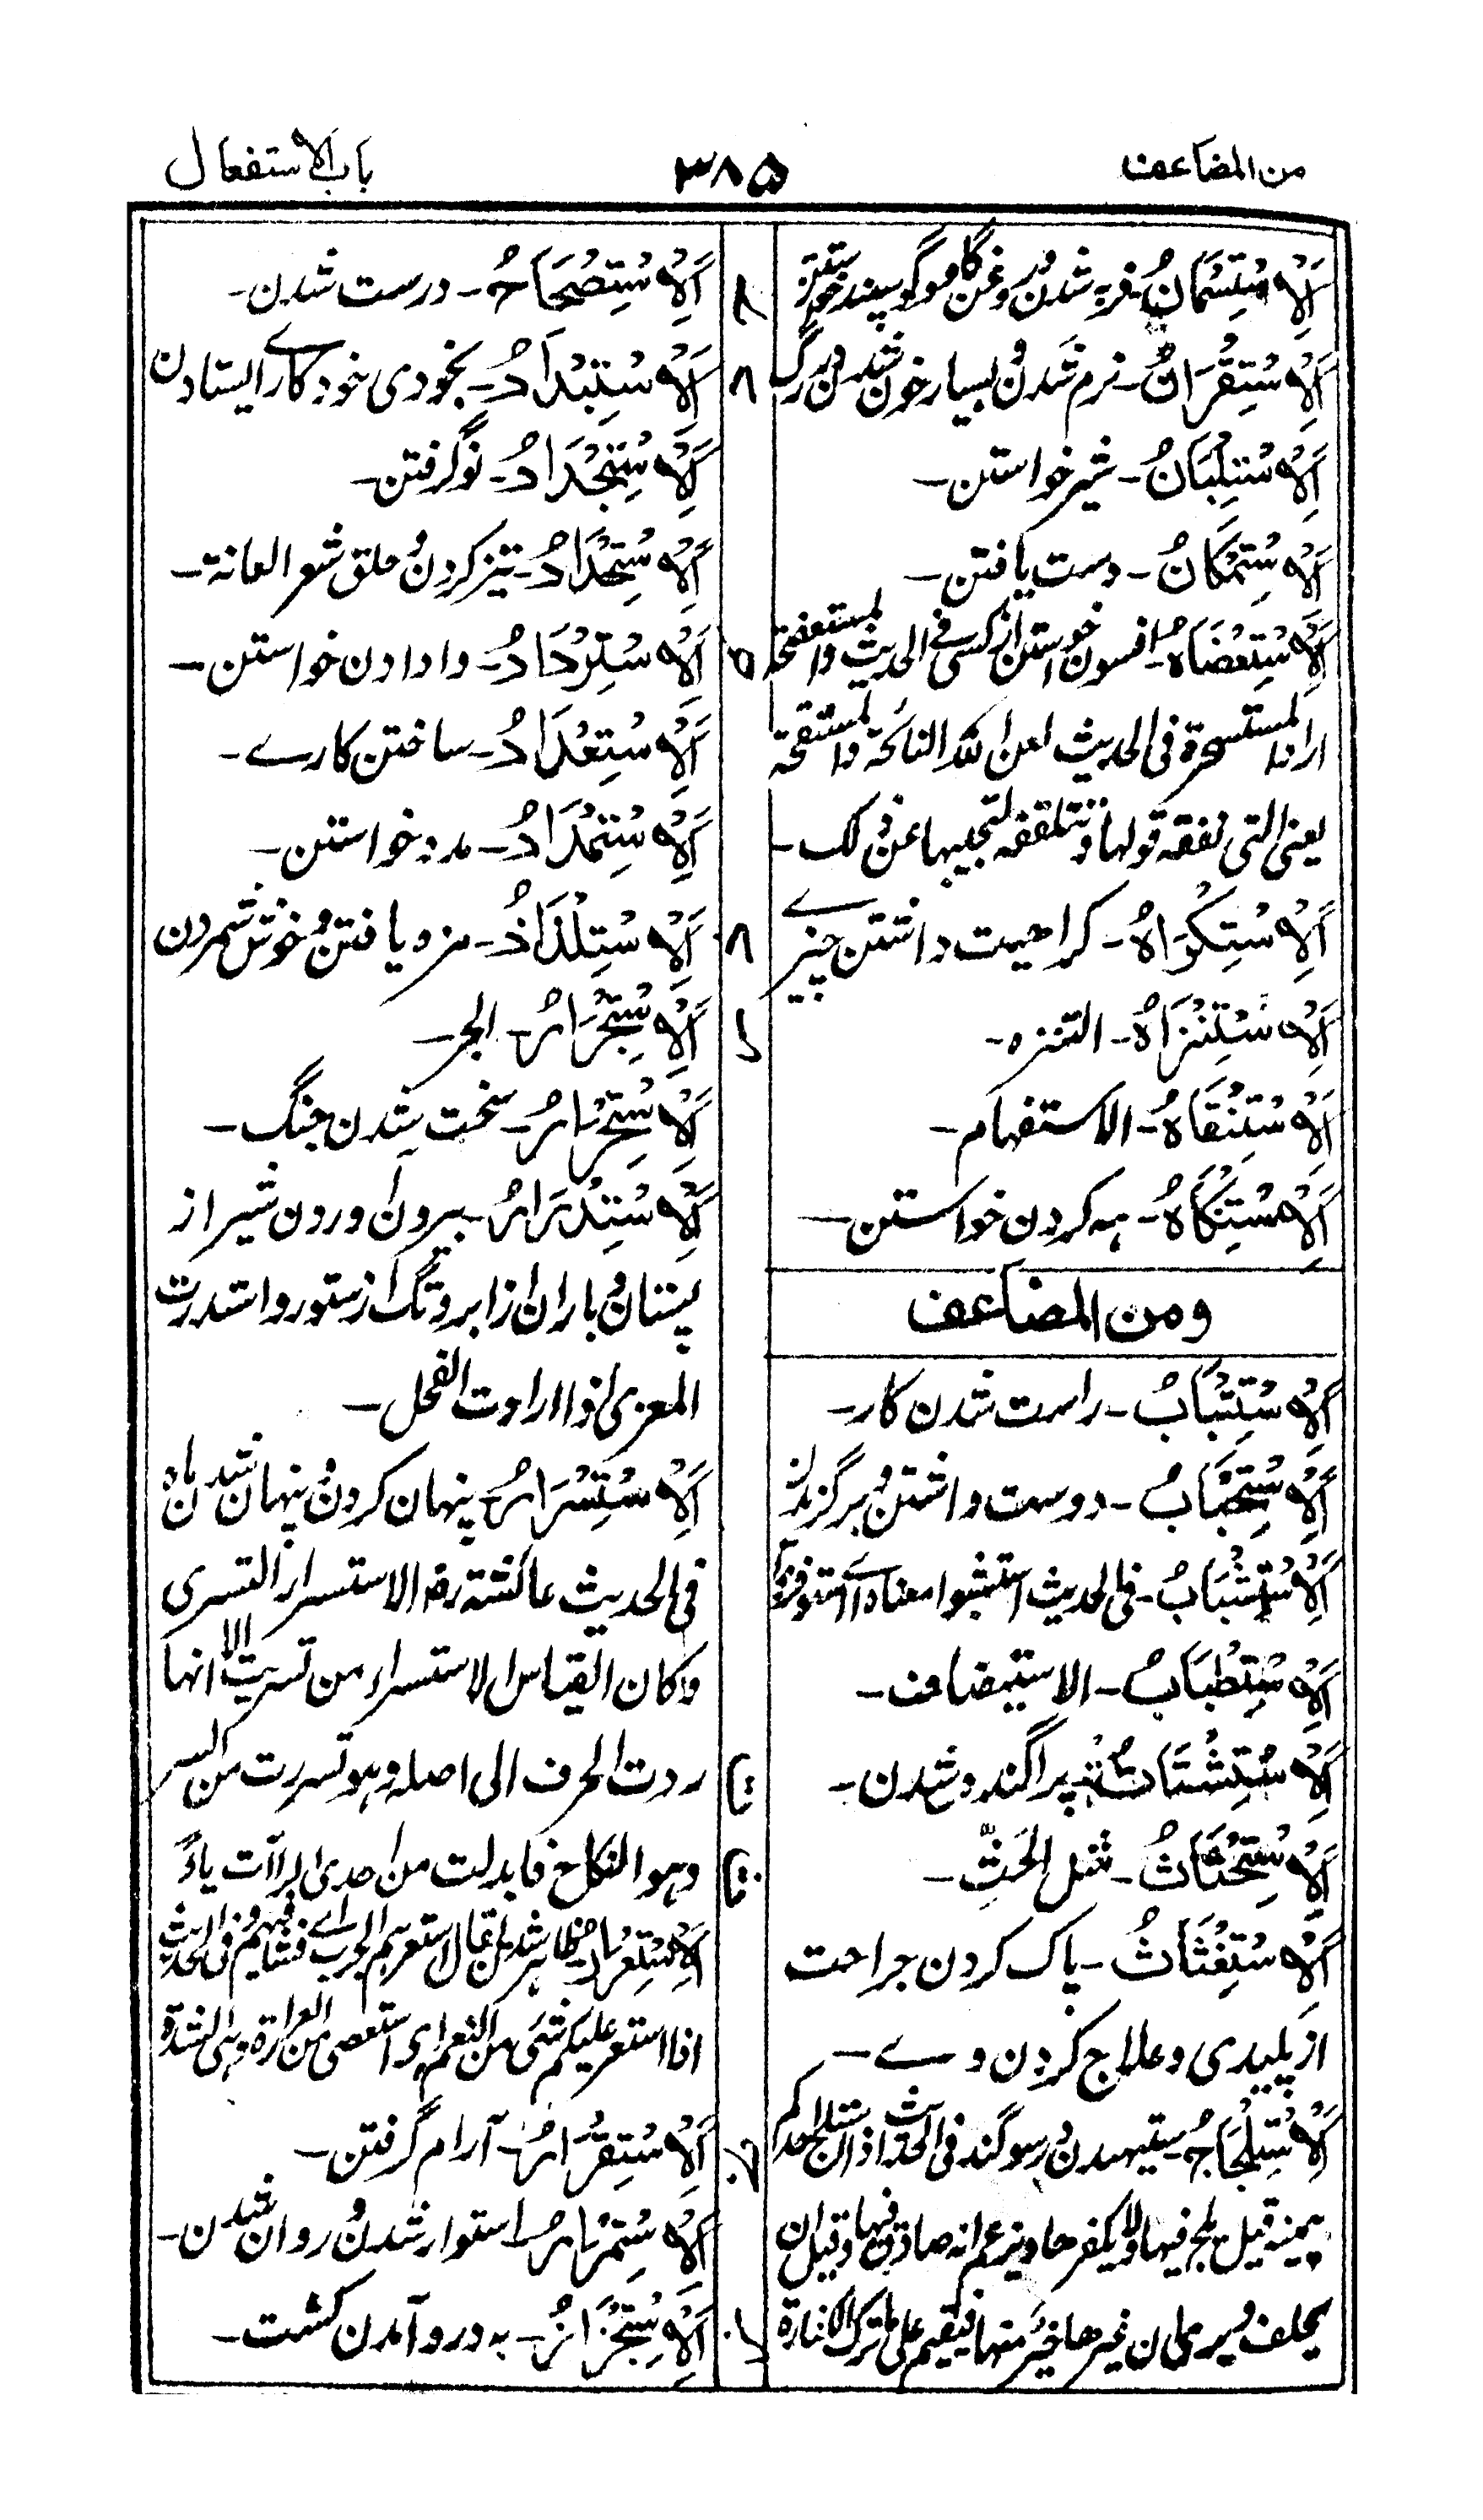 من المضاعف
۳۸۵
باب الاستفعال
اَلْاِسْتِسْمَانُ۔ فربہ شدن و روغن گاو و گوسپند خواستن
اَلْاِسْتِقْرَانُ۔ نرم شدن و بسیار خون شدن در رگ
اَلْاِسْتِلْبَانُ۔ شیر خواستن۔
اَلْاِسْتِمْکَانُ۔ دست یافتن۔
اَلْاِسْتِعْضَاہُ۔ افسون خواستن از کسی فی الحدیث والمستعضهة
اراد المستسحرة فی الحدیث لعن اللہ النائحة والمستفقهة
یعنی التی تفقہ قولها و تتلقفہ لتجیبها عن ذلک۔
اَلْاِسْتِکْرَاہُ۔ کراهیت داشتن چیزے
اَلْاِسْتِنْزَاہُ۔ التنزہ۔
اَلْاِسْتِنْقَاہُ۔ الاستفهام۔
اَلْاِسْتِنْکَاہُ۔ ہہ کردن خواستن۔
ومن المضاعف
اَلْاِسْتِتْبَابُ۔ راست شدن کار۔
اَلْاِسْتِحْبَابُ۔ دوست داشتن و برگزیدن
اَلْاِسْتِشْبَابُ۔ فی الحدیث استشبوا معناہ اے استوفزوا
اَلْاِسْتِطْبَابُ۔ الاستیضاف۔
اَلْاِسْتِشْتَاتُ۔ پراگندہ شدن۔
اَلْاِسْتِحْثَاثُ۔ مثل الحَثِّ۔
اَلْاِسْتِغْثَاثُ۔ پاک کردن جراحت
از پلیدی و علاج کردن وے۔
اَلْاِسْتِلْجَاجُ۔ ستیهیدن و سوگند فی الحدیث اذا استلج احدکم
بیمینہ قیل یلج فیها ولا یکفرها و یزعم انہ صادق فیها وقیل ان
یحلف و یری ان غیرها خیر منها فیقیم علی ترک الکفارة
ح
اَلْاِسْتِصْحَاحُ۔ درست شدن۔
د
اَلْاِسْتِبْدَادُ۔ بخودی خود کارے ایستادن
اَلْاِسْتِجْدَادُ۔ نو گرفتن۔
اَلْاِسْتِحْدَادُ۔ تیز کردن و حلق شعر العانة۔
اَلْاِسْتِرْدَادُ۔ وا دادن خواستن۔
اَلْاِسْتِعْدَادُ۔ ساختن کارے۔
اَلْاِسْتِمْدَادُ۔ مدد خواستن۔
اَلْاِسْتِلْذَاذُ۔ مزہ یافتن و خوش شمردن
ر
اَلْاِسْتِجْرَارُ۔ الجر۔
اَلْاِسْتِحْرَارُ۔ سخت شدن جنگ۔
اَلْاِسْتِدْرَارُ۔ بیرون آوردن شیر از
پستان و باران از ابر و تگ از ستور و استدرت
المعزی اذا ارادت الفحل۔
اَلْاِسْتِسْرَارُ۔ پنهان کردن و پنهان شدن ماہ
فی الحدیث عائشة رض الاستسرار التسری
وکان القیاس الاستسراء من تسریت الا انها
ردت الحرف الی اصلہ وهو تسررت من السر
وهو النکاح فابدلت من احدی الراآت یاءً
اَلْاِسْتِعْرَارُ۔ ظاهر شدن یقال استعرهم الجرب اے فشا فیهم وفی الحدیث
اذا استعر علیکم شیٔ من النعم اے استعصی من العرارة وهی الشدة
اَلْاِسْتِقْرَارُ۔ آرام گرفتن۔
اَلْاِسْتِمْرَارُ۔ استوار شدن و روان شدن۔
ز
اَلْاِسْتِجْزَازُ۔ بہ درو آمدن کشت۔